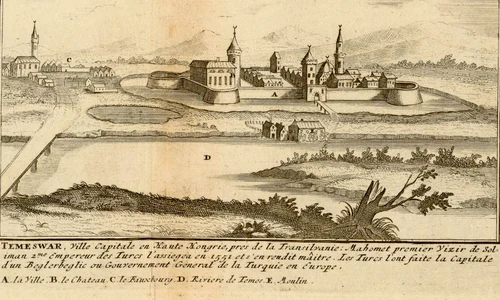 C
A
D
TEMESWAR, Ville Capitale en Haute Hongrie, pres de la Transilvanie: Mahomet premier Vizir de Sol-
iman 2me Empereur des Turcs l'assiegea en 1551 et s'en rendit maitre. Les Turcs l'ont faite la Capitale
d'un Beglerbeglic ou Gouvernement General de la Turquie en Europe.
A. la Ville. B. le Chateau. C. le Fauxbourg. D. Riviere de Temes. E. Moulin.